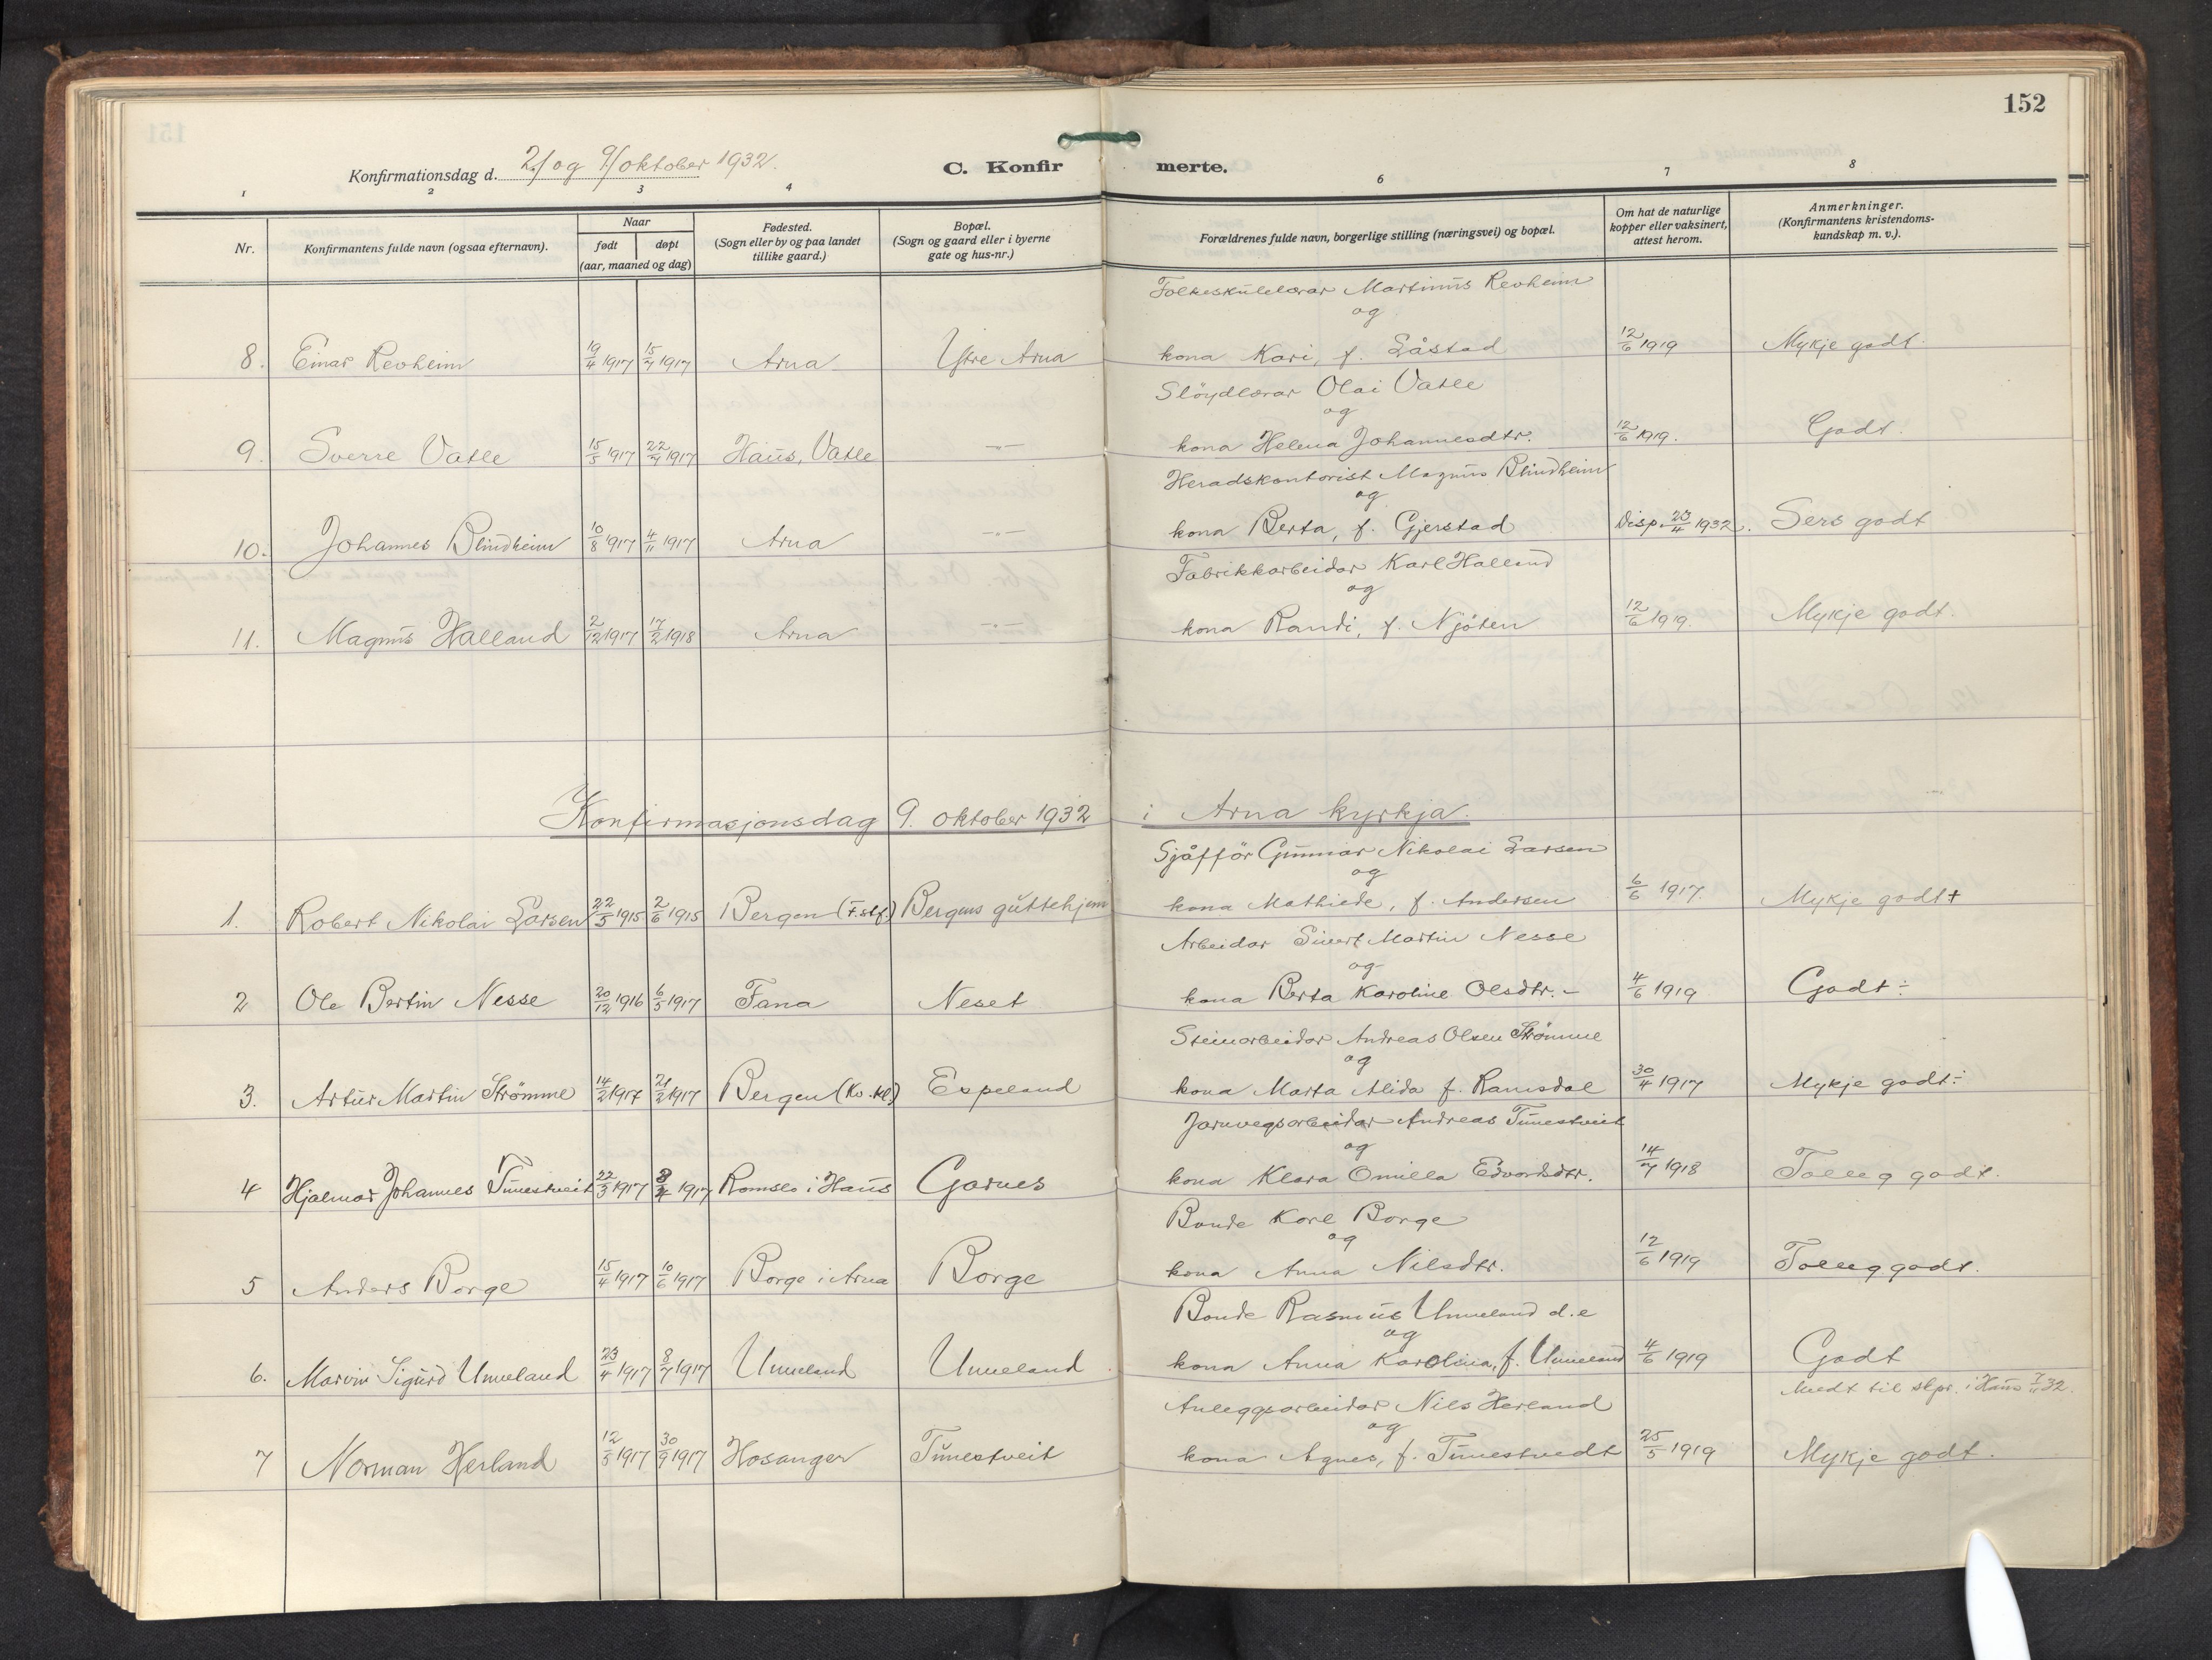 152
Konfirmationsdag d. 2/ og 9/ oktober 1932.
C. Konfirmerte.
1 2 3 4 6 7 8
Nr.
Konfirmantens fulde navn (ogsaa efternavn).
Naar
født
døpt
(aar, maaned og dag)
Fødested.
(Sogn eller by og paa landet
tillike gaard.)
Bopæl.
(Sogn og gaard eller i byerne
gate og hus-nr.)
Forældrenes fulde navn, borgerlige stilling (næringsvei) og bopæl.
Om hat de naturlige
kopper eller vaksinert,
attest herom.
Anmerkninger.
(Konfirmantens kristendoms-
kundskap m. v.).
Folkeskulelærar Martinus Revheim
og
8. Einar Revheim 19/4 1917 15/7 1917 Arna Ytre Arna kona Kari, f. Låstad 12/6 1919 Mykje godt.
Slöydlærar Olai Vatle
og
9. Sverre Vatle 15/5 1917 22/7 1917 Haus, Vatle —"— kona Helena Johannesdtr. 12/6 1919. Godt.
Heradskontorist Magnus Blindheim
og
10. Johannes Blindheim 10/8 1917 4/11 1917 Arna —"— kona Berta, f. Gjerstad Disp. 23/4 1932. Sers godt
Fabrikkarbeidar Karl Halland
og
11. Magnus Halland 2/12 1917 17/2 1918 Arna —"— kona Randi, f. Njöten 12/6 1919. Mykje godt.
Konfirmasjonsdag 9. oktober 1932 i Arna kyrkja.
Sjåfför Gunnar Nikolai Larsen
og
1. Robert Nikolai Larsen 22/5 1915 2/6 1915 Bergen (F.stf.) Bergens guttehjem kona Mathilde, f. Andersen 6/6 1917. Mykje godt +
Arbeidar Sivert Martin Nesse
og
2 Ole Bertin Nesse 20/12 1916 6/5 1917 Fana Neset kona Berta Karoline Olsdtr. - 4/6 1919 Godt ÷
Steinarbeidar Andreas Olsen Strömme
og
3. Artur Martin Strömme 14/2 1917 21/2 1917 Bergen (Kv.kl) Espeland kona Marta Alida f. Ramsdal 30/4 1917 Mykje godt ÷
Jarnvegsarbeidar Andreas Tunestveit
og
4 Hjalmar Johannes Tunestveit 22/3 1917 8/4 1917 Romslo i Haus Garnes kona Klara Omilla Edvardsdtr. 14/7 1918 Tolleg godt.
Bonde Karl Borge
og
5 Anders Borge 15/4 1917 10/6 1917 Borge i Arna Borge kona Anna Nilsdtr. 12/6 1919 Tolleg godt.
Bonde Rasmus Unneland d.e
og
6. Marvin Sigurd Unneland 23/4 1917 8/7 1917 Unneland Unneland kona Anna Karolina, f. Unneland 4/6 1919 Godt
Meldt til skpr. i Haus 7/11 32.
Anleggsarbeidar Nils Herland
og
7 Norman Herland 12/5 1917 30/9 1917 Hosanger Tunestveit kona Agnes, f. Tunestvedt 25/5 1919 Mykje godt.